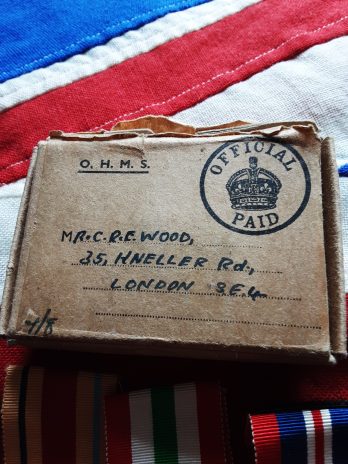 O.H.M.S.
OFFICIAL
PAID
MR. C. R. E. WOOD,
35, KNELLER Rd.,
LONDON S.E.4
4/8